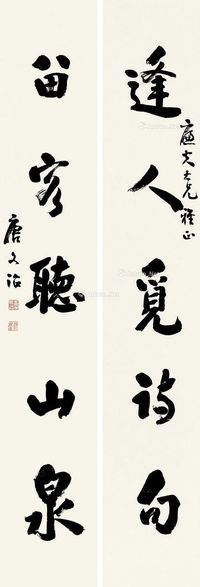 廉夫大兄雅正
逢人覓詩句
留客聽山泉
唐文治